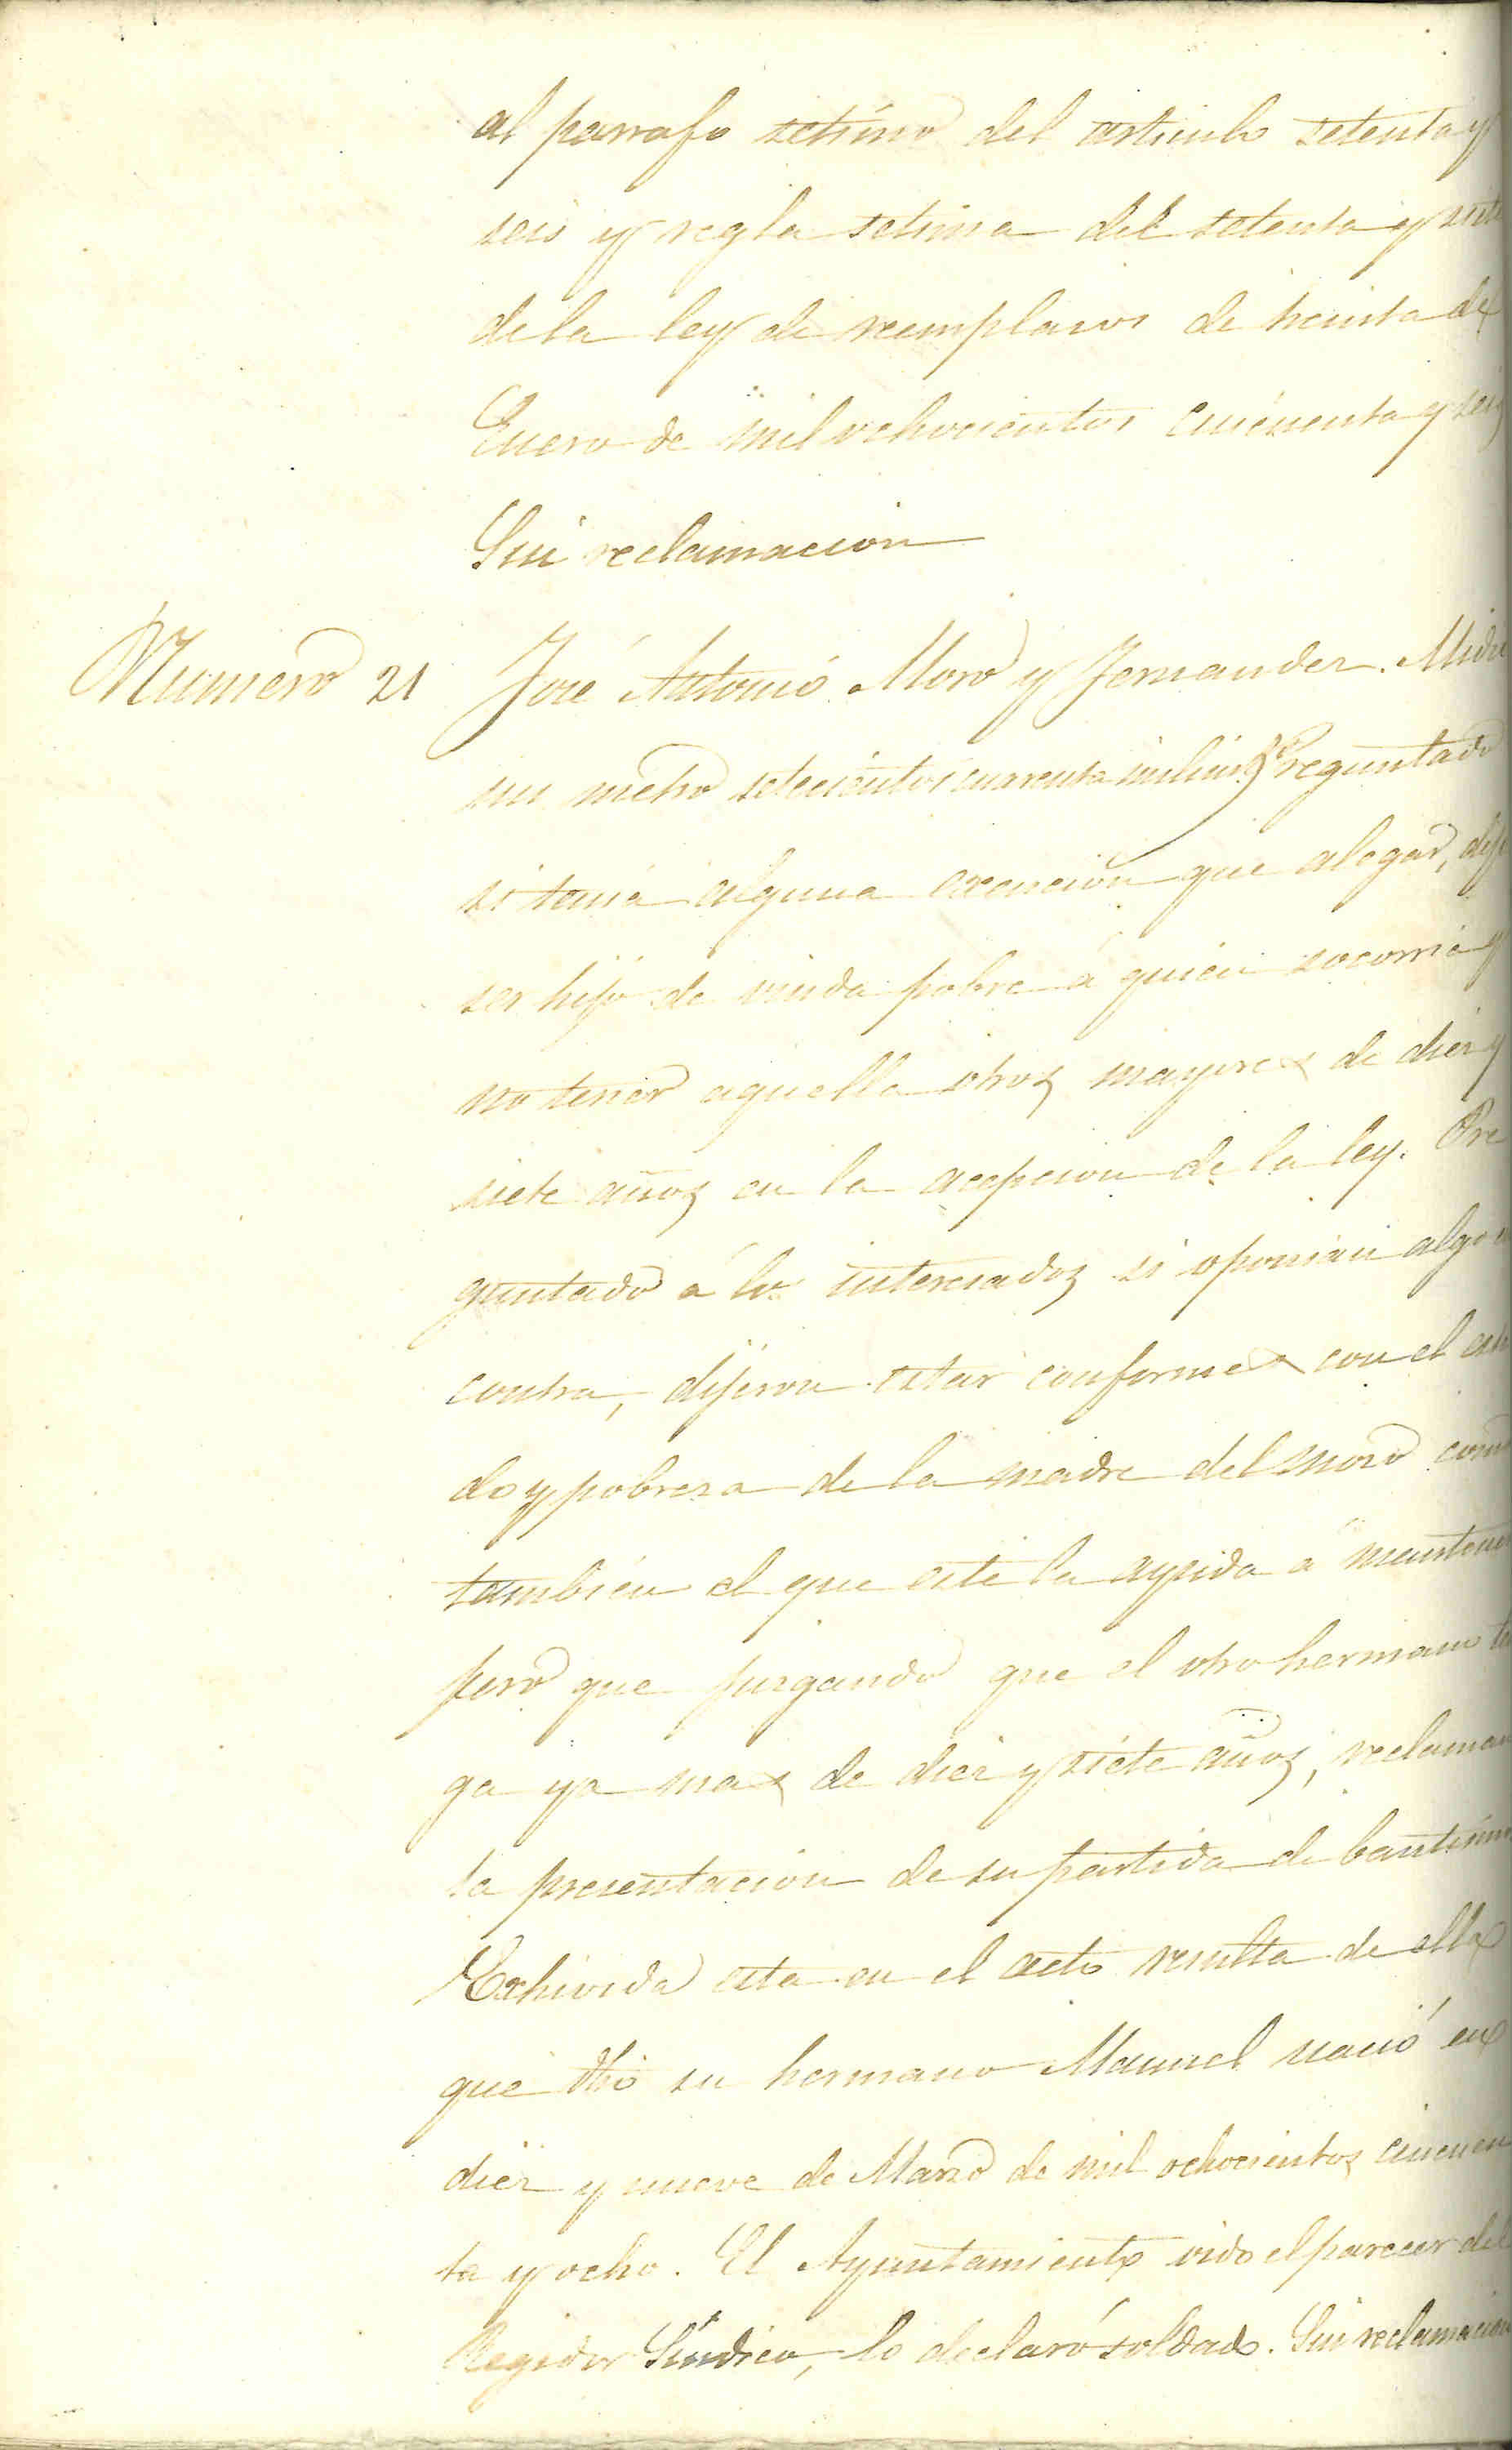 al parrafo setimo del articulo setenta y
seis y regla setima del setenta y siete
de la ley de reemplasos de treinta de
Enero de mil ochocientos cincuenta y seis
Sin reclamacion
Numero 21 José Antonio Moro y Fernandez. Midio
un metro setecientos cuarenta milim.s Preguntado
si tenia alguna exencion que alegar, dijo
ser hijo de viuda pobre á quien socorria y
no tener aquella otros mayores de diez y
siete años en la acepcion de la ley. Pre
guntado á los interesados si oponian algo en
contra, dijeron estar conformes con el esta
do y pobreza de la madre del moso como
tambien el que este la ayuda á mantener
pero que juzgando que el otro hermano ten
ga ya mas de diez y siete años, reclaman
la presentacion de su partida de bautismo
Exhivida esta en el acto resulta de ella
que su hermano Manuel nació en
diez y nueve de Marzo de mil ochocientos cincuen
ta y ocho. El Ayuntamiento oido el parecer del
Regidor Síndico, lo declaró soldado. Sin reclamacion